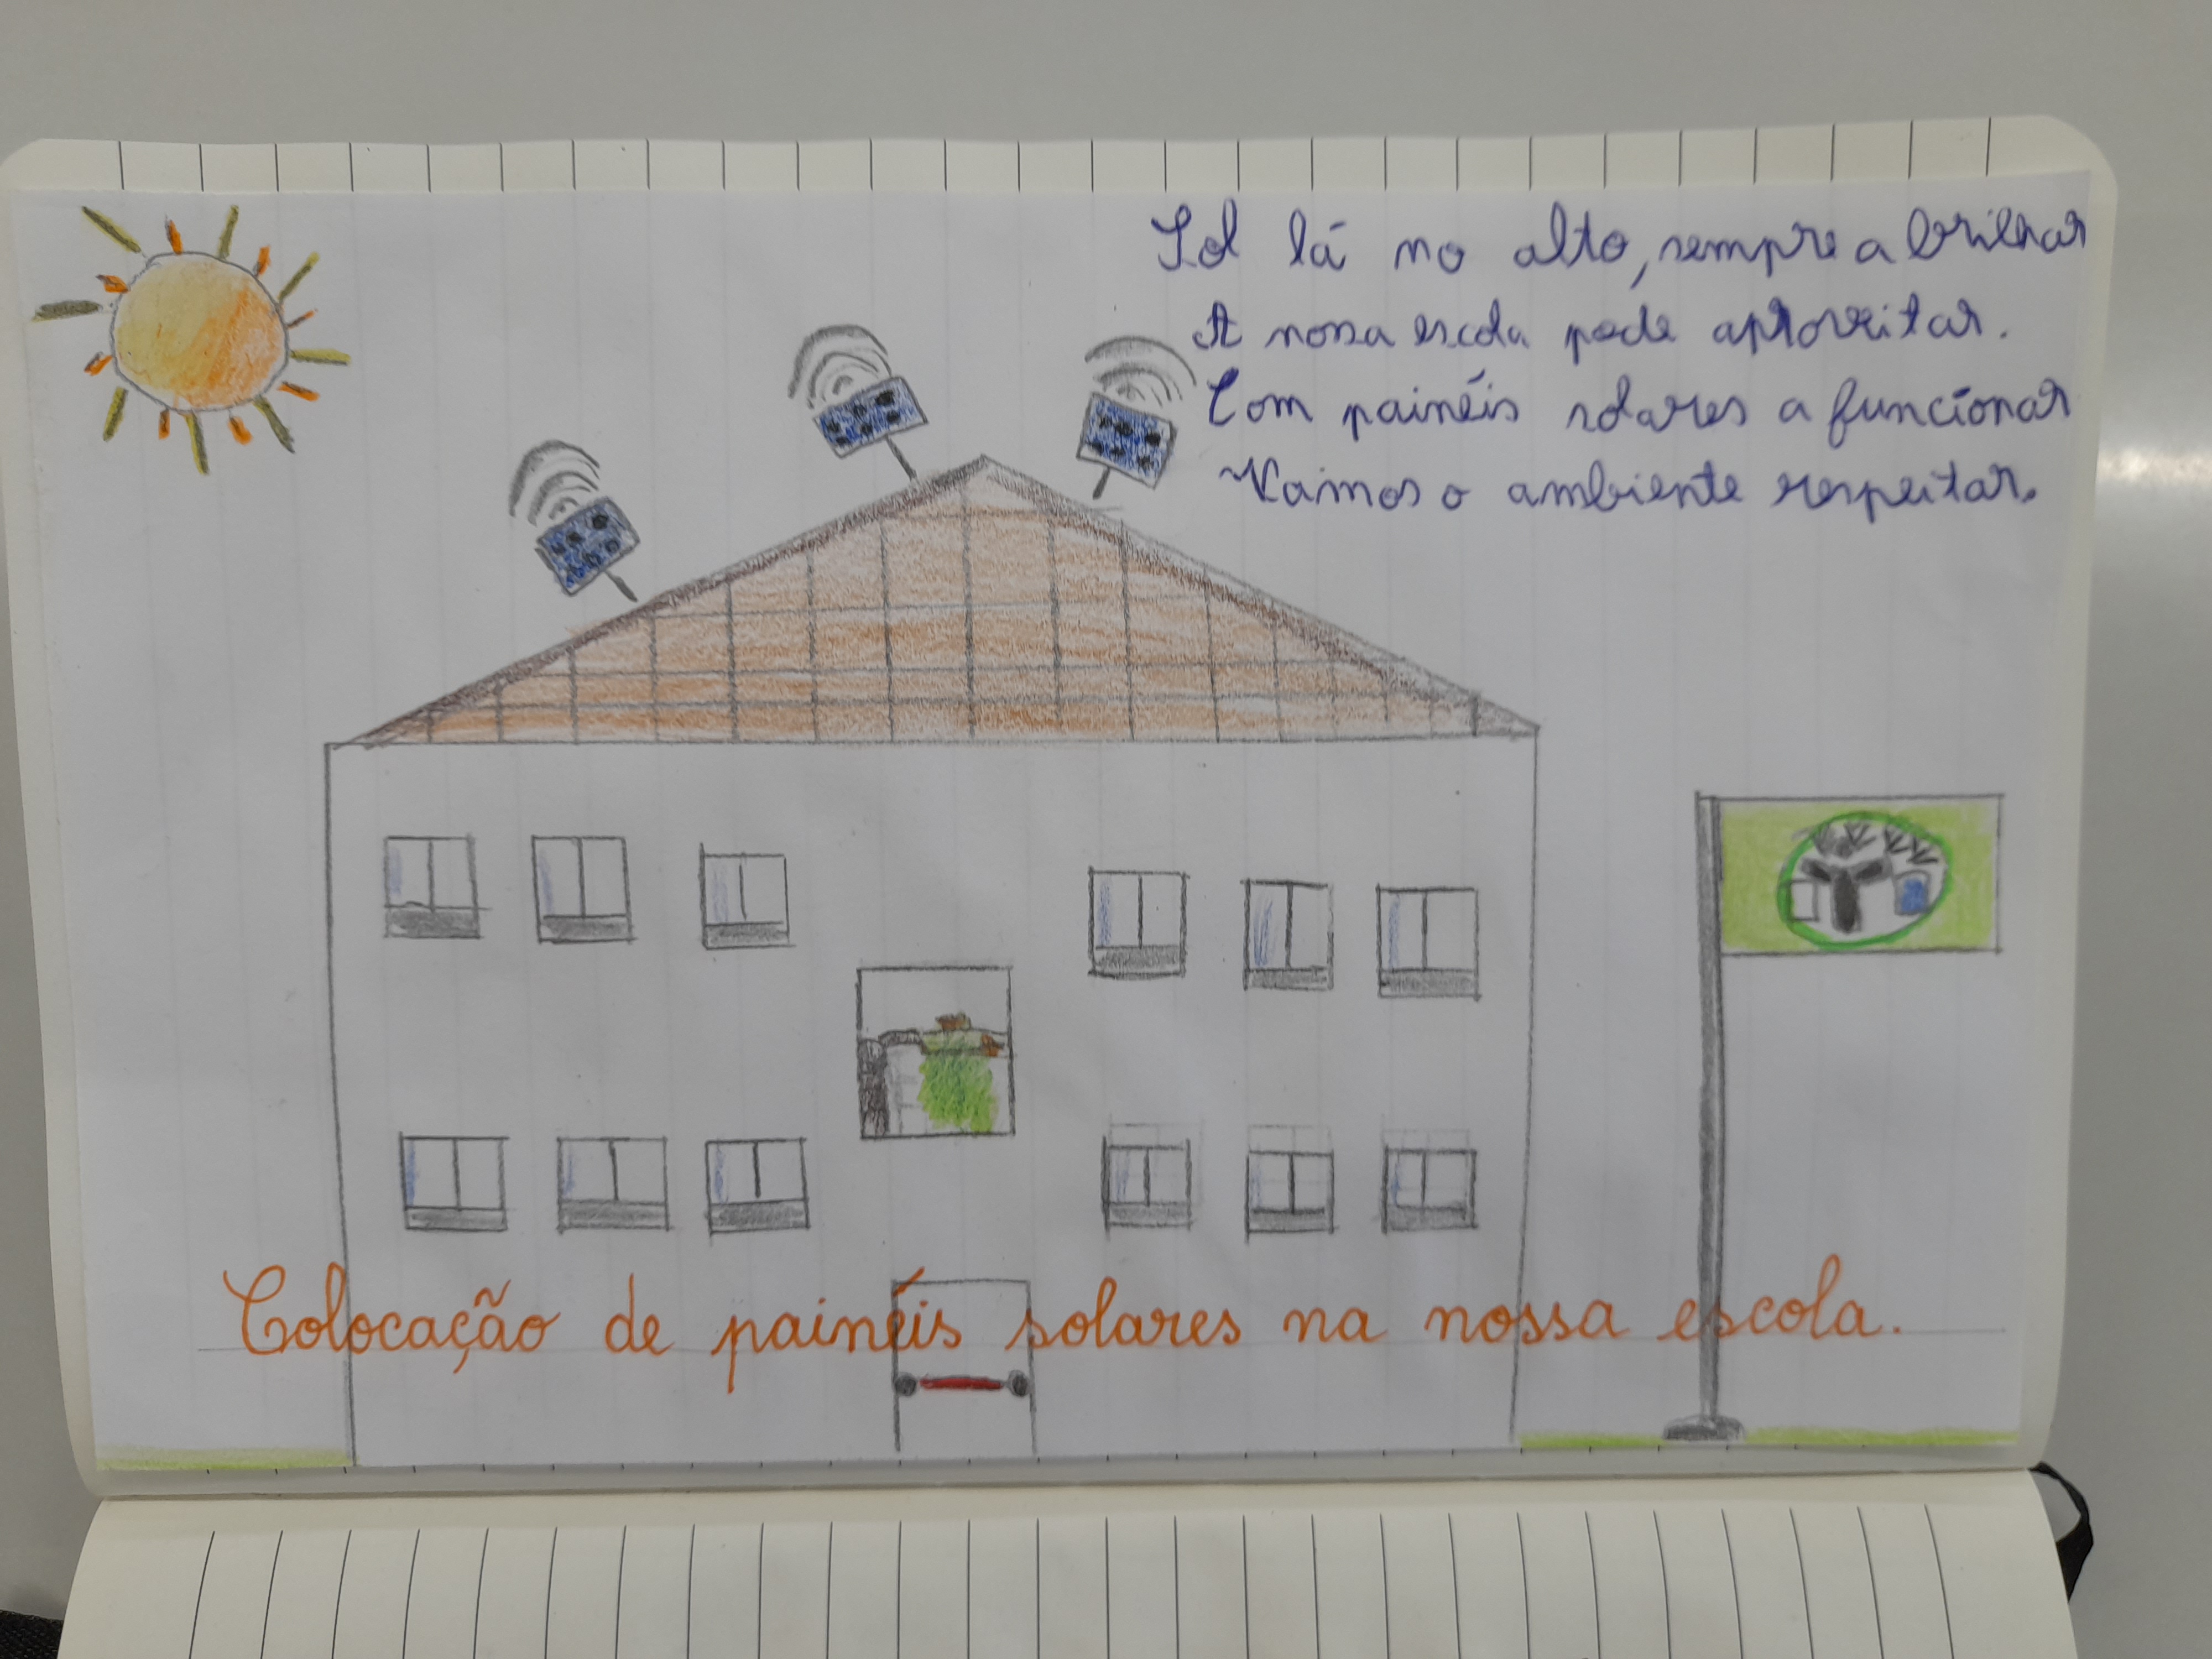 Sol lá no alto, sempre a brilhar
A nossa escola pode aproveitar.
Com painéis solares a funcionar
Vamos o ambiente respeitar.
Colocação de painéis solares na nossa escola.